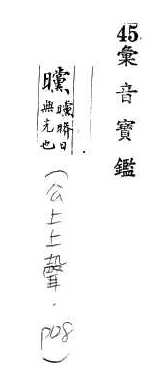 45.彙音寶鑑
曭
曭日
無光也
(公上上聲. p08)